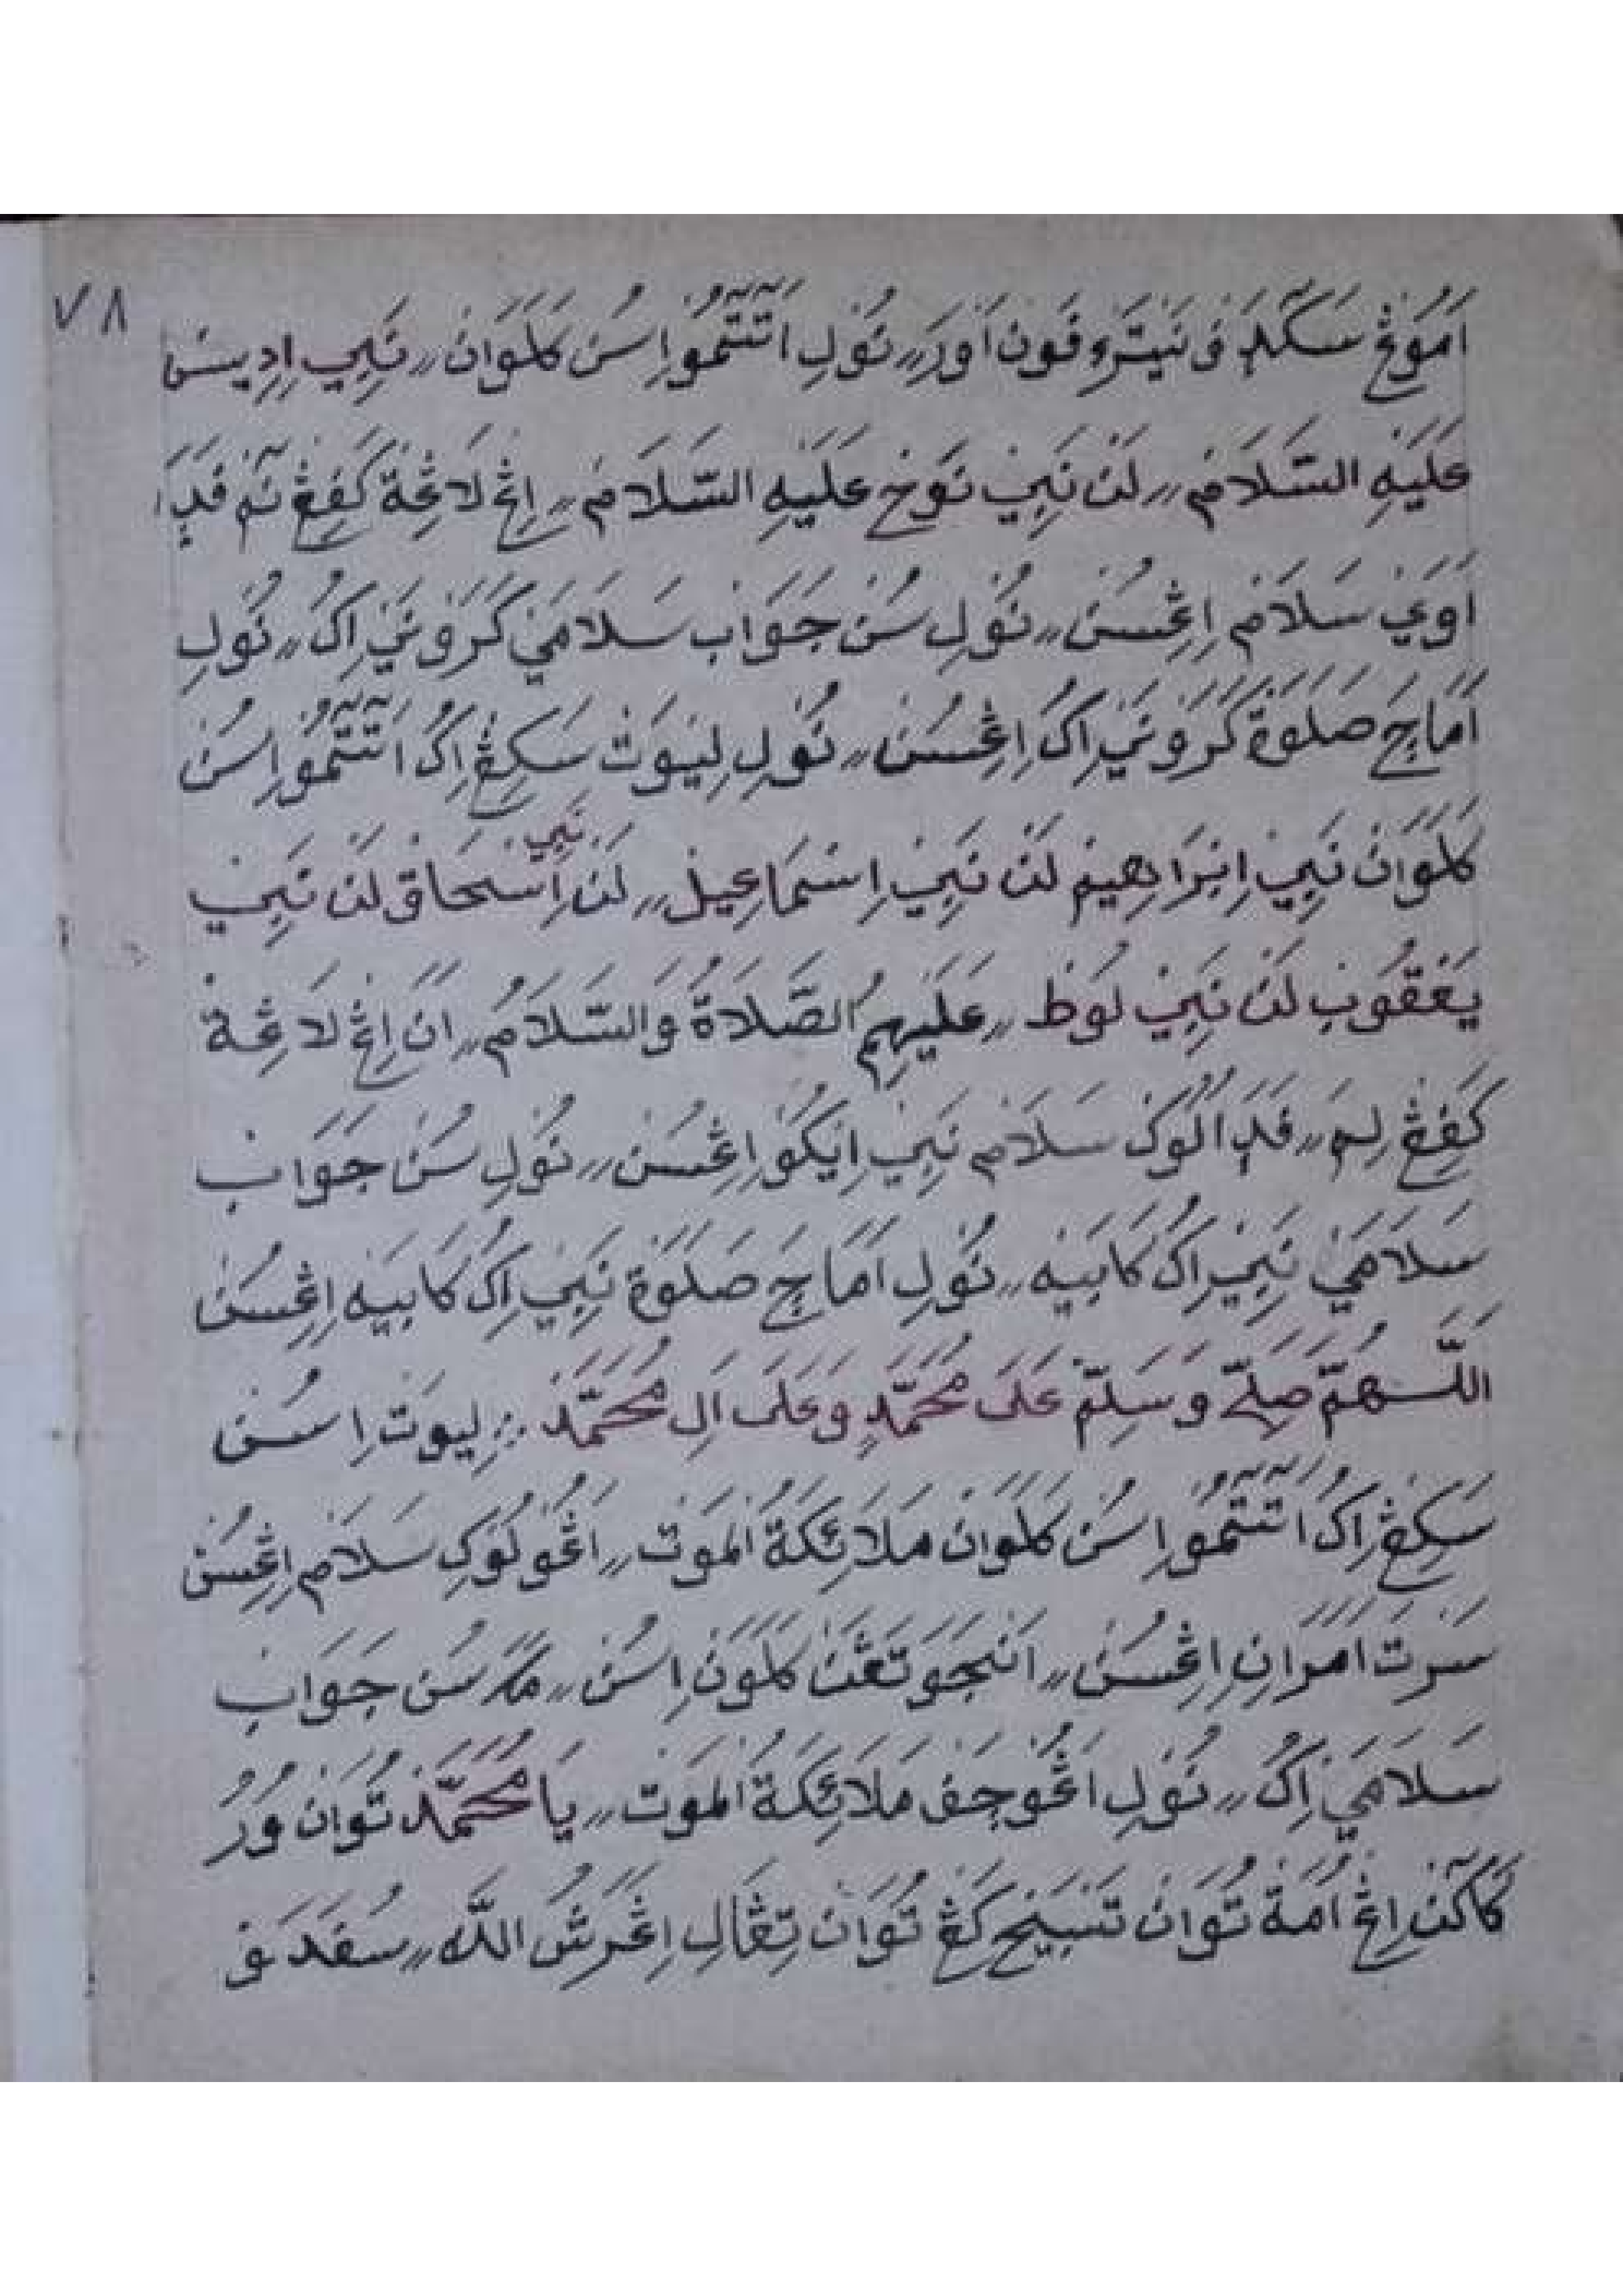 ٧٨
اَمُوْڠْ سَكَلَ نُوْلِ اَتٓتٓمُوْ اِسُنْ كَلَوَانْ ٫٫ نَبِي اِدِرِيسْ
عَلَيْهِ السَّلَامْ ٫٫ لَنْ نَبِيْ نُوْحْ عَلَيْهِ السَّلَامْ ٫٫ اِڠْ لَاڠِةْ كَڤِڠْ نٓمْ ڤَدَا
اَوَيْ سَلَامْ اِڠْسُنْ ٫٫ نُوْلِ سُنْ جَوَابْ سَلَامَيْ كَرَوْنَيْ اِكُ ٫٫ نُوْلِ
اَمَاچَ صَلَوَةْ كَرَوْنَيْ اِكُ اِڠْسُنْ ٫٫ نُوْلِ لِيْوَتْ سَكِڠْ اِكُ اَتٓتٓمُوْ اِسُنْ
كَلَوَانْ نَبِيْ اِبْرَاهِيْمْ لَنْ نَبِيْ اِسْمَاعِيْلْ ٫٫ لَنْ نَبِي اِسْحَاقْ لَنْ نَبِيْ
يَعْقُوبْ لَنْ نَبِيْ لُوْطْ ٫٫ عَلَيْهِمُ الصَّلَاةُ وَالسَّلَامُ ٫٫ اَنَ اِڠْ لَاڠِةْ
كَڤِڠْ لِمَ ٫٫ ڤَدَ اُلُوْكْ سَلَامْ نَبِيْ اِيْكُوْ اِڠْسُنْ ٫٫ نُوْلِ سُنْ جَوَابْ
سَلَامَيْ نَبِيْ اِكُ كَابَيْهْ ٫٫ نُوْلِ اَمَاچَ صَلَوَةْ نَبِيْ اِكُ كَابَيْهْ اِڠْسُنْ
اَللّٰهُمَّ صَلِّ وَسَلِّمْ عَلَى مُحَمَّدٍ وَعَلَى اَلِ مُحَمَّدْ ؞ لِيوَتْ اِسُنْ
سَكِڠْ اِكُ اَتٓتٓمُوْ اِسُنْ كَلَوَانْ مَلَائِكَةُ الْمَوْتْ ٫٫ اَڠُوْلُوْكِ سَلَامْ اِڠْسُنْ
سَرْتَ اِڠْسُنْ ٫٫ اَنْجَوَتَڠَنْ كَلَوَنْ اِسُنْ ٫٫ مَكَ سُنْ جَوَابْ
سَلَامَيْ اِكُ ٫٫ نُوْلِ اَڠُوْچَفْ مَلَائِكَةُ الْمَوْتْ ٫٫ يَا مُحَمَّدْ تُوَانْ وُرُ
كَاكٓنْ اِڠْ اُمَةْ تُوَانْ تَسْبِيْحْ كَڠْ تُوَانْ تِڠَالِ اِڠْ عَرْشُ اللّٰهْ ٫٫